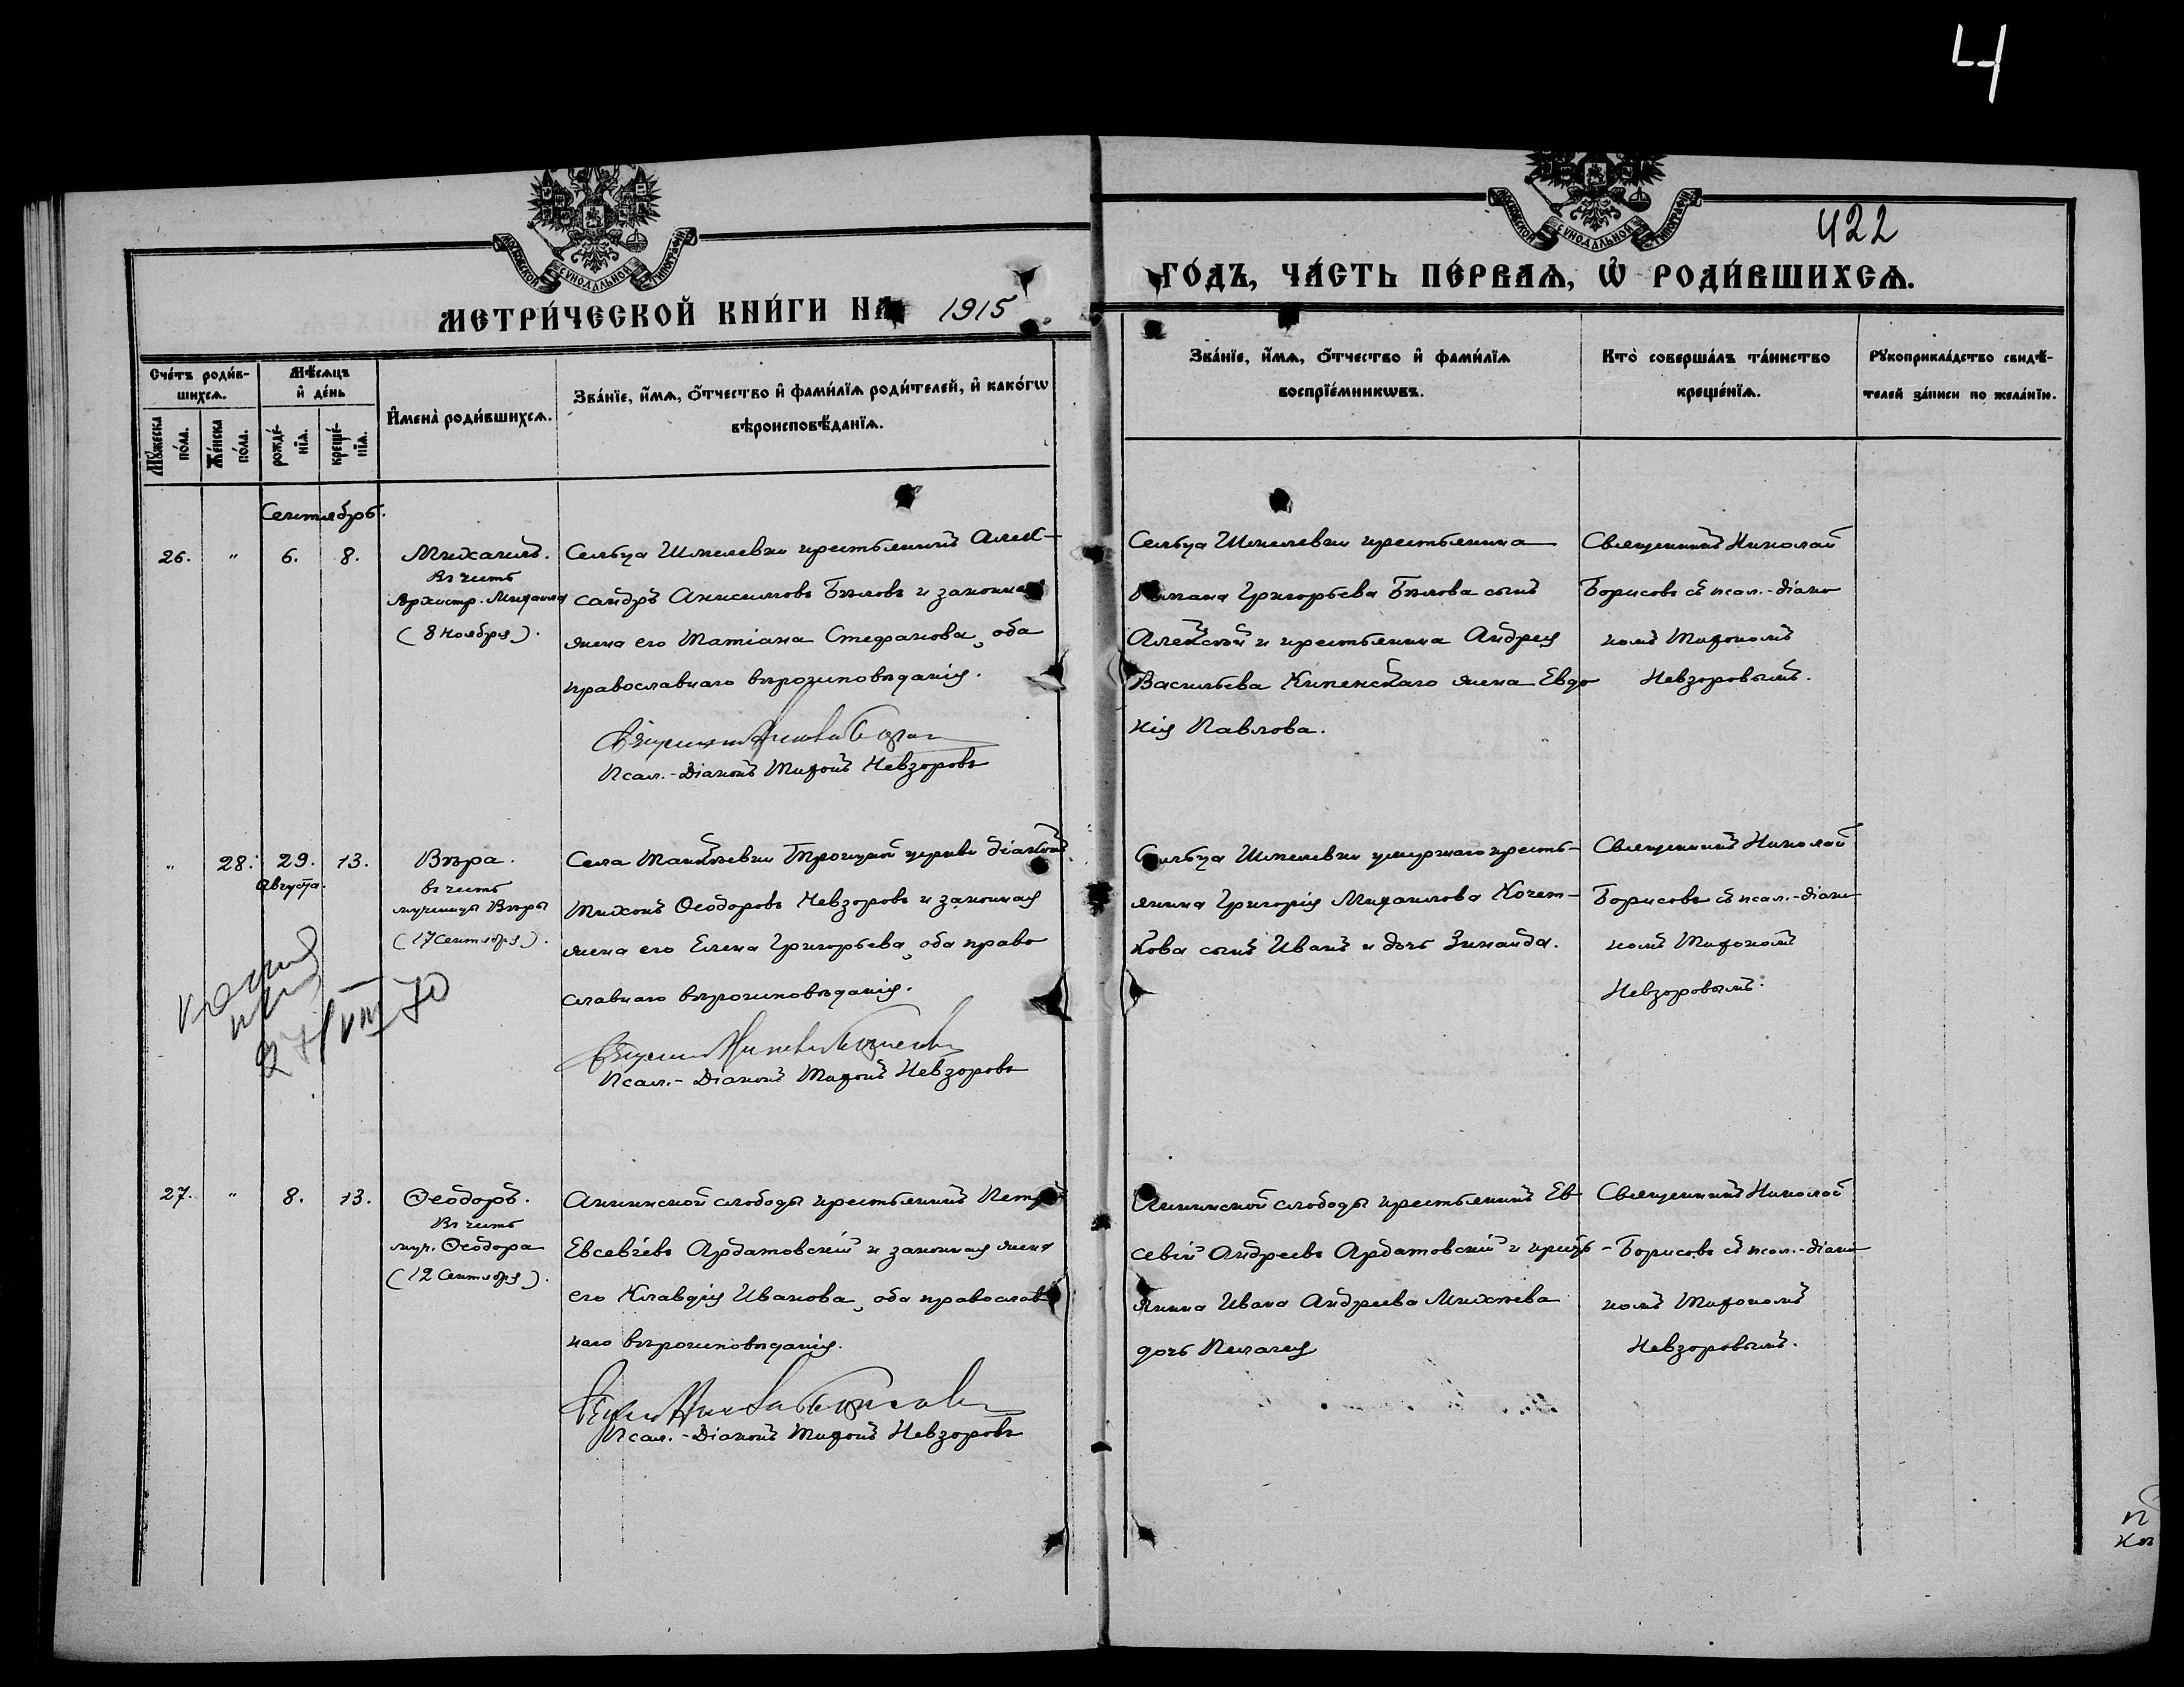 4
422
МОСКОВСКОЙ СѴНОДАЛЬНОЙ ТИПОГРАФІИ
МОСКОВСКОЙ СѴНОДАЛЬНОЙ ТИПОГРАФІИ
МЕТРИ́ЧЕСКОЙ КНИ́ГИ НА 1915 ГО́ДЪ, ЧА́СТЬ ПЕ́РВАѦ, Ѡ РОДИ́ВШИХСѦ.
Сче́тъ роди́в-
шихсѧ.
Мѣ́сѧцъ
и҆ де́нь
Мꙋ́жеска по́ла.
Же́нска по́ла.
рожде́-
нїѧ.
креще́-
нїѧ.
И҆мена̀ роди́вшихсѧ.
Зва́нїе, и҆́мѧ, ѻ҆́тчество и҆ фами́лїѧ роди́телей, и҆ како́гѡ
вѣроисповѣ́данїѧ.
Зва́нїе, и҆́мѧ, ѻ҆́тчество и҆ фами́лїѧ
воспрїе́мникѡвъ.
Кто̀ соверша́лъ та́инство
креще́нїѧ.
Рꙋкоприкла́дство свидѣ́-
телей за́писи по жела́нїю.
Сентябрь.
26. " 6. 8.
Михаилъ.
Въ честь
Архистр. Михаила
(8 Ноября).
Сельца Шмелевки крестьянинъ Алек-
сандръ Анисимовъ Бѣловъ и законная
жена его Татіана Стефанова, оба
православнаго вѣроисповѣданія.
Священникъ Николай Борисовъ
Псал.-Діаконъ Тихонъ Невзоровъ
Сельца Шмелевки крестьянина
Григорьева Бѣлова сынъ
Алексѣй и крестьянина Андрея
Васильева Кипенскаго жена Евдо
кія Павлова.
Священникъ Николай
Борисовъ съ псал.-діако
номъ Тихономъ
Невзоровымъ.
" 28. 29. 13.
Августа.
Вѣра.
въ честь
мученицы Вѣры
(17 Сентября).
Села Троицкой церкви діаконъ
Тихонъ Ѳеодоровъ Невзоровъ и законная
жена его Елена Григорьева, оба право
славнаго вѣроисповѣданія.
Священникъ Николай Борисовъ
Псал.-Діаконъ Тихонъ Невзоровъ
Сельца Шмелевки умершаго кресть-
янина Григорія Михаилова Кочет-
кова сынъ Иванъ и дочь Зинаида.
Священникъ Николай
Борисовъ съ псал.-діако
номъ Тихономъ
Невзоровымъ.
27/VIII 70
27. " 8. 13.
Ѳеодоръ.
Въ честь
муч. Ѳеодора
(12 Сентября).
Аннинской слободы крестьянинъ Петръ
Евсевіевъ Ардатовскій и законная жена
его Клавдія Иванова, оба православ
наго вѣроисповѣданія.
Священникъ Николай Борисовъ
Псал.-Діаконъ Тихонъ Невзоровъ
Аннинской слободы крестьянинъ Ев
севій Андреевъ Ардатовскій и кресть-
янина Ивана Андреева Михѣева
дочь Пелагея
Священникъ Николай
Борисовъ съ псал.-діако
номъ Тихономъ
Невзоровымъ.